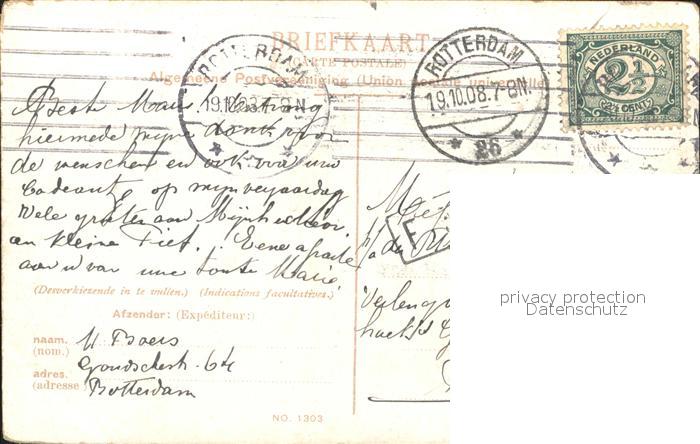 BRIEFKAART
(CARTE POSTALE)
Algemeene Postvereeniging (Union postale universelle)
ROTTERDAM
19.10.08.7-8N.
ROTTERDAM
19.10.08.7-8N.
* 26 *
NEDERLAND
2½
(2½ CENT)
Beste Marie, Ontvang
hiermede mijn dank voor
de wenschen en ook voor uw
Cadeautje op mijn verjaardag
Vele groeten aan Mijnheer
en kleine Piet. Eene aparte
aan u van uwe tante Marie.
(Desverkiezende in te vullen.) (Indications facultatives.)
Afzender: (Expéditeur:)
naam. M Boers
(nom.)
adres. Goudschestr. 64
(adresse) Rotterdam
NO. 1303
privacy protection
Datenschutz